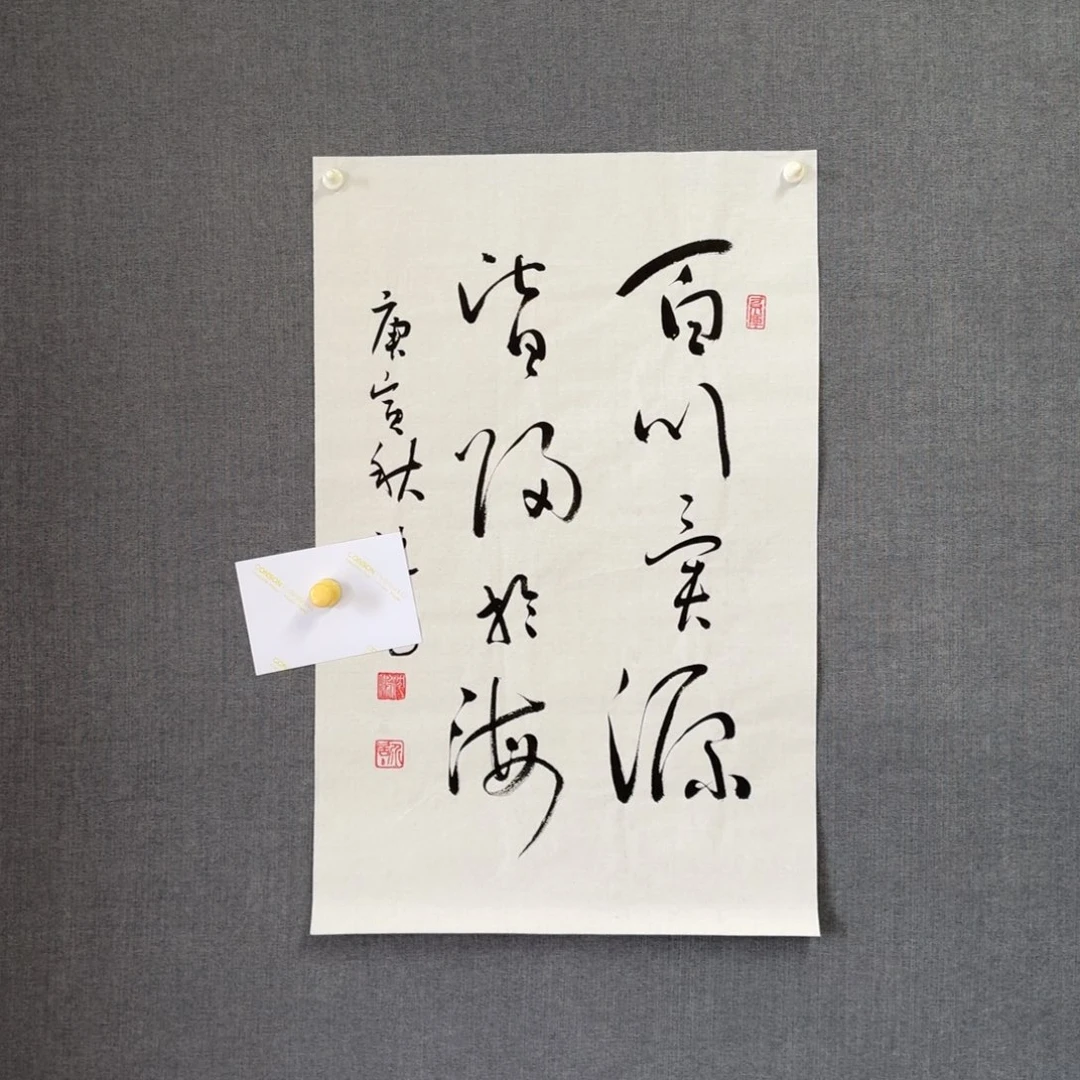 百川異源
皆歸於海
庚寅秋